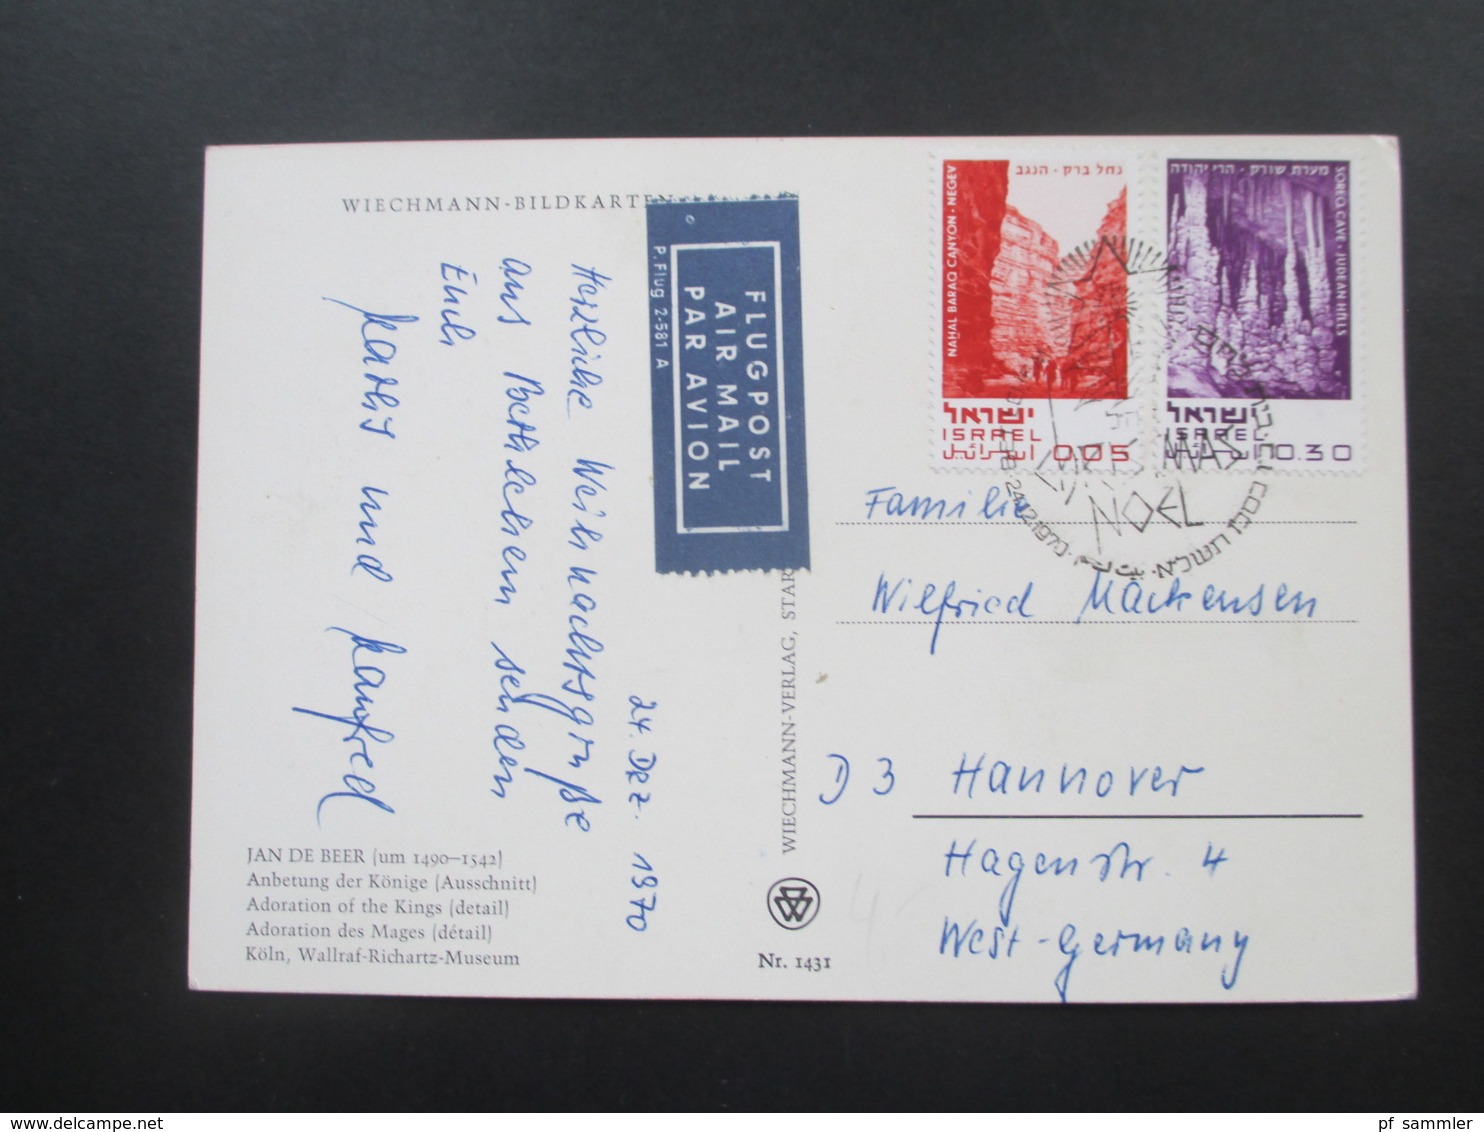 WIECHMANN-BILDKARTEN
FLUGPOST
AIR MAIL
PAR AVION
P. Flug 2-581 A
24. Dez. 1970
Herzliche Weihnachtsgrüße
aus Bethlehem senden
Euch
und Manfred
JAN DE BEER (um 1490–1542)
Anbetung der Könige (Ausschnitt)
Adoration of the Kings (detail)
Adoration des Mages (détail)
Köln, Wallraf-Richartz-Museum
WIECHMANN-VERLAG, STAR
Nr. 1431
נחל ברק · הנגב
NAHAL BARAQ CANYON · NEGEV
ישראל
ISRAEL 0.05
اسرائيل
מערת שורק · הרי יהודה
SOREQ CAVE · JUDEAN HILLS
ישראל
ISRAEL 0.30
اسرائيل
NOEL
24.12.1970
בית לחם
بيت لحم
Familie
Wilfried Mackensen
D 3 Hannover
Hagenstr. 4
West-Germany
pf_sammler